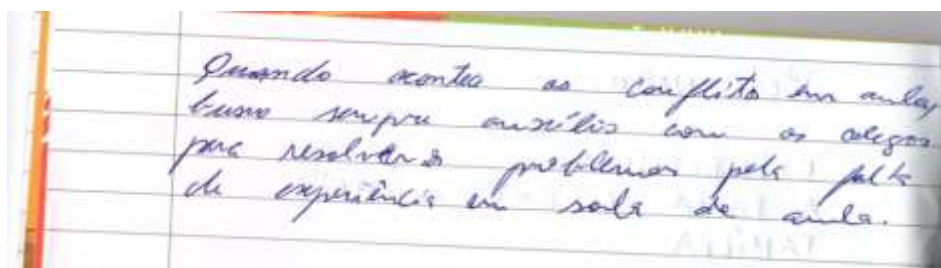 Quando acontec os conflitos em aulas,
busco sempre auxílio com os colegas
para resolver os problemas pela falta
de experiência em sala de aula.